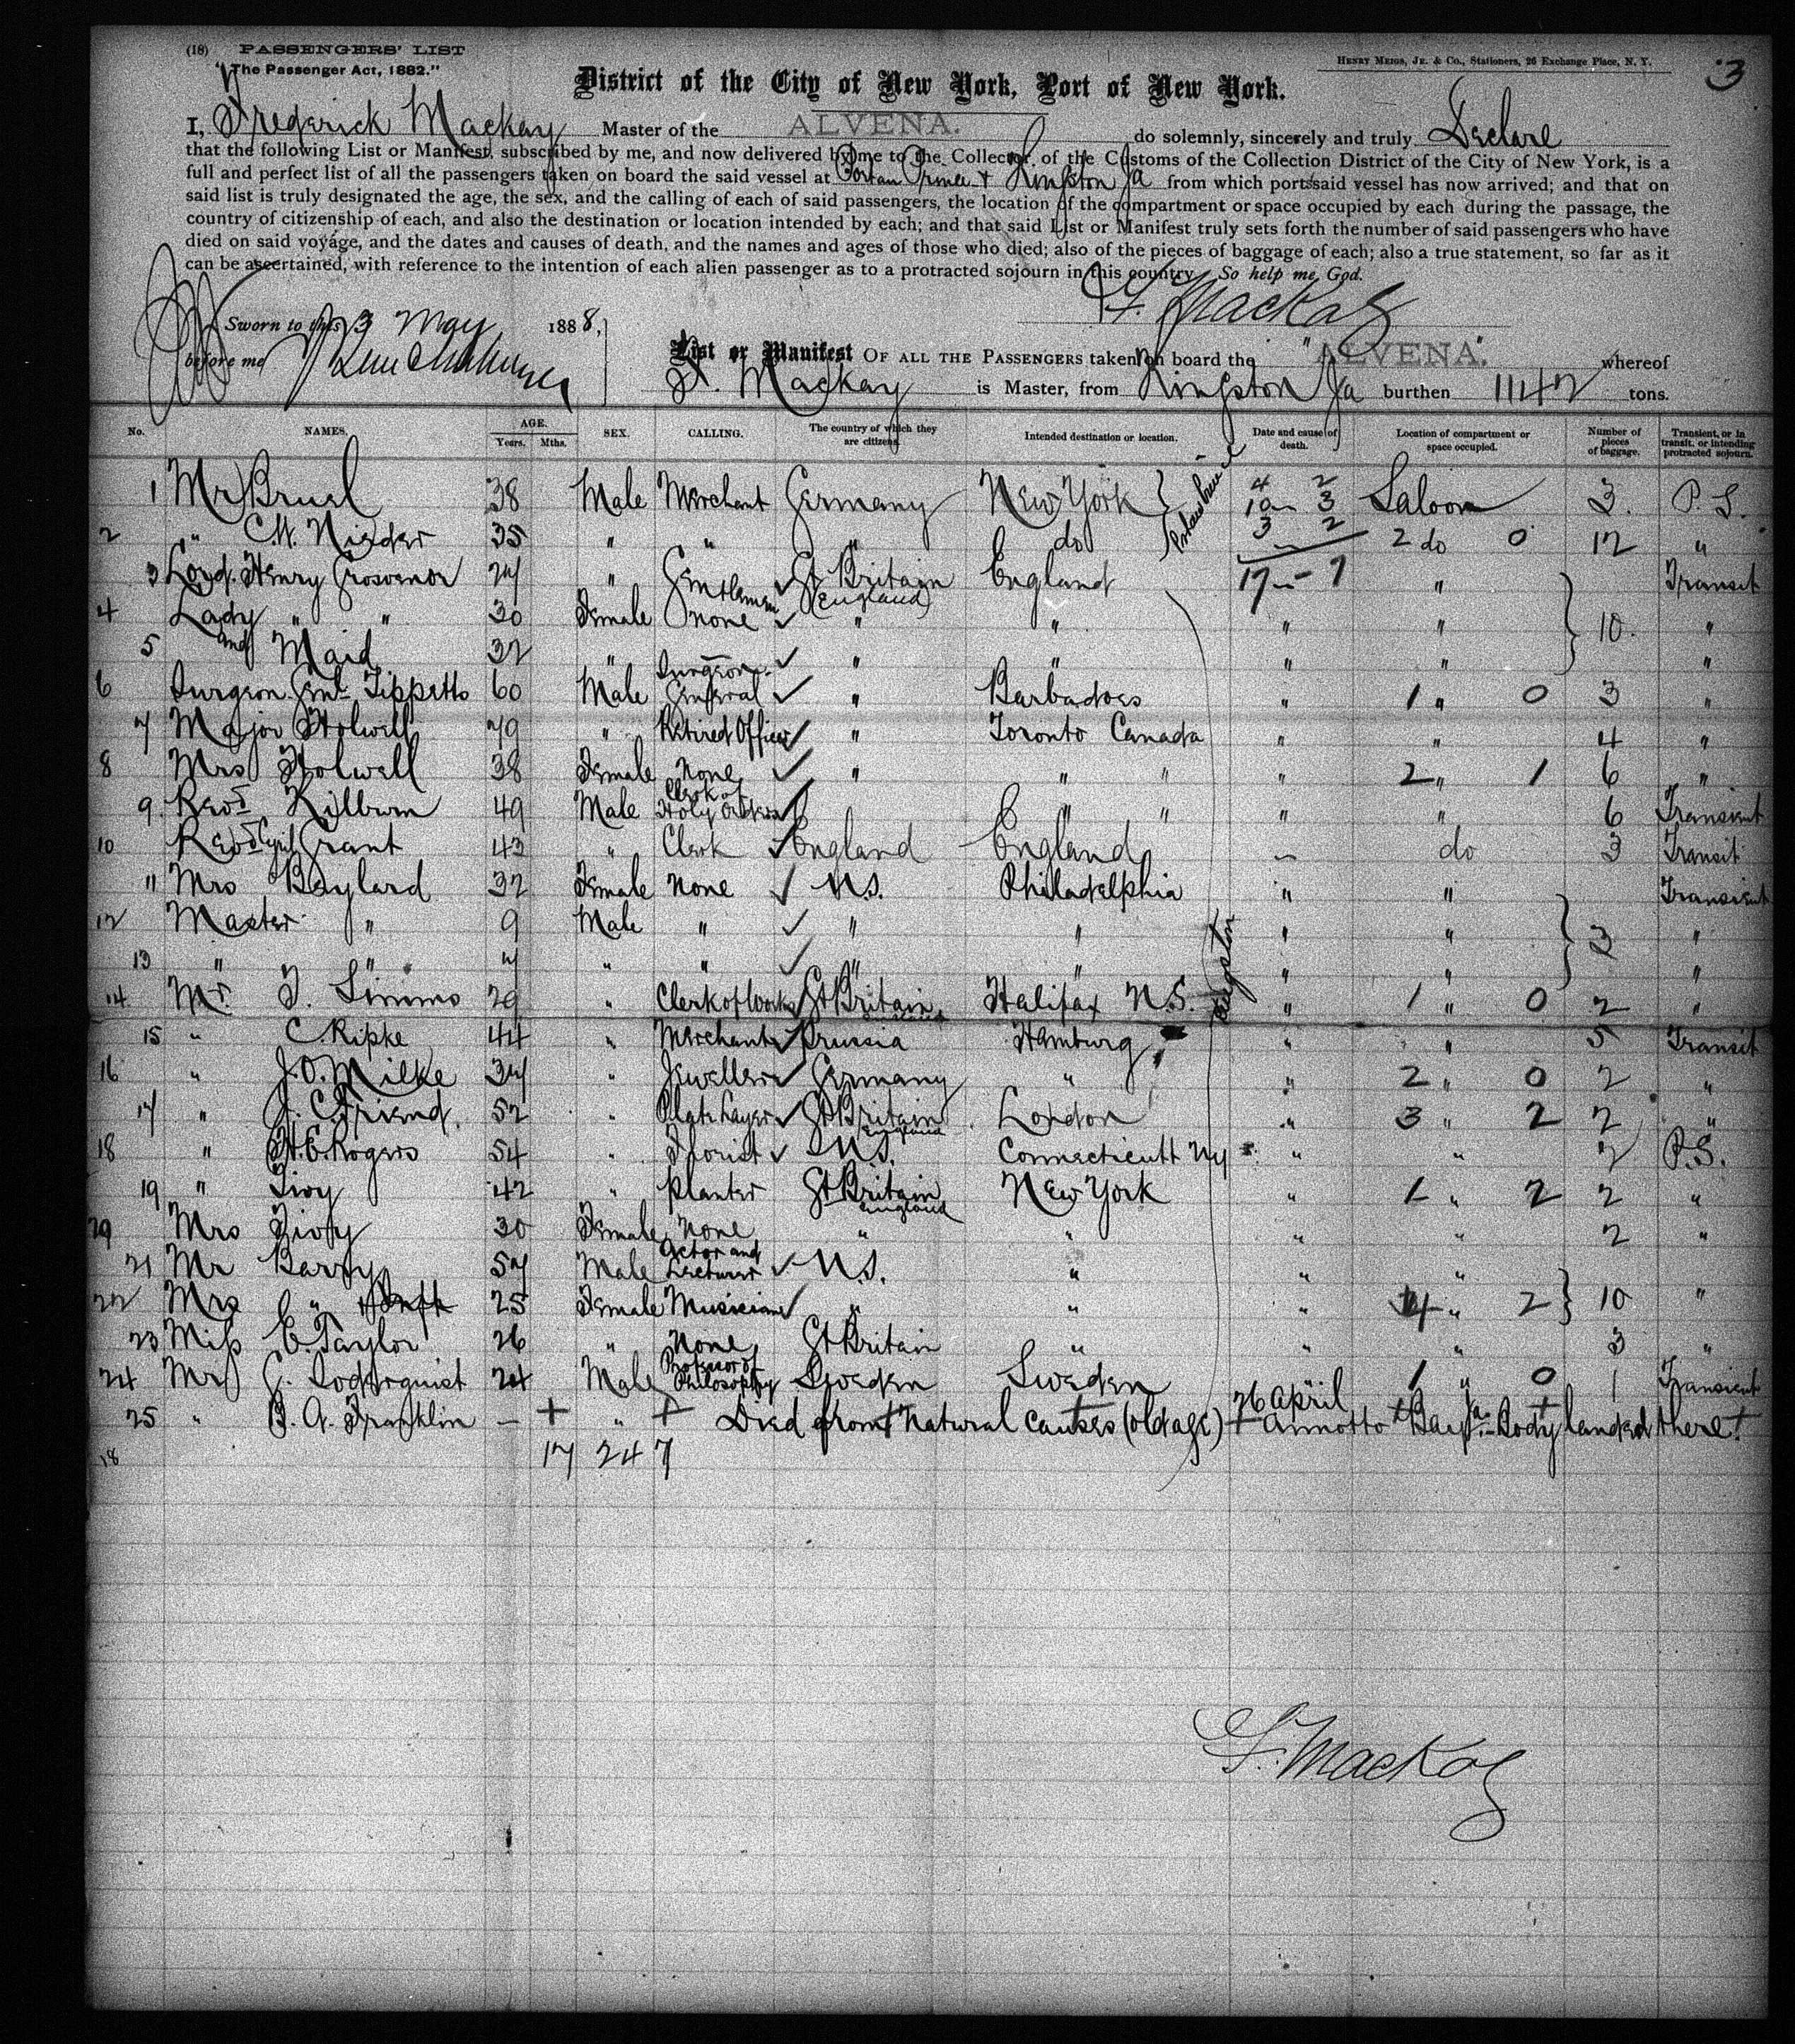 (18) PASSENGERS' LIST
"The Passenger Act, 1882."
HENRY MEIGS, JR. & CO., Stationers, 26 Exchange Place, N. Y.
3
District of the City of New York, Port of New York.
I, Frederick Mackay Master of the ALVENA. do solemnly, sincerely and truly Declare
that the following List or Manifest, subscribed by me, and now delivered by me to the Collector of the Customs of the Collection District of the City of New York, is a
full and perfect list of all the passengers taken on board the said vessel at Port au Prince + Kingston Ja from which ports said vessel has now arrived; and that on
said list is truly designated the age, the sex, and the calling of each of said passengers, the location of the compartment or space occupied by each during the passage, the
country of citizenship of each, and also the destination or location intended by each; and that said List or Manifest truly sets forth the number of said passengers who have
died on said voyage, and the dates and causes of death, and the names and ages of those who died; also of the pieces of baggage of each; also a true statement, so far as it
can be ascertained, with reference to the intention of each alien passenger as to a protracted sojourn in this country. So help me, God.
F. Mackay
Sworn to this 3 May 1888,
before me
List or Manifest OF ALL THE PASSENGERS taken on board the "ALVENA". whereof
F. Mackay is Master, from Kingston Ja burthen 1142 tons.
No. NAMES. AGE. Years. Mths. SEX. CALLING. The country of which they are citizens. Intended destination or location. Date and cause of death. Location of compartment or space occupied. Number of pieces of baggage. Transient, or in transit, or intending protracted sojourn.
1 Mr Bruel 38 Male Merchant Germany New York } 4 2 10 - 3 Saloon 3. P.S.
2 " C.H. Nieder 35 " " " do 3 - 2 2 do 0 12 "
3 Lord Henry Grosvenor 27 " Gentleman Gt Britain (England) England 17 - 7 " Transit
4 Lady " " 30 Female None " " " " } 10. "
5 and Maid 32 " " " " " "
6 Surgeon Genl Tippetts 60 Male Surgeon General " Barbadoes " 1 " 0 3 "
7 Major Holwell 79 " Retired Officer " Toronto Canada " " 4 "
8 Mrs Holwell 38 Female None " " " " 2 " 1 6 "
9. Revd Kilburn 49 Male Clerk of Holy Orders " " " " 6 Transient
10 Revd Cyril Grant 43 " Clerk England England " do 3 Transit
11 Mrs Baylard 32 Female None U.S. Philadelphia " " Transient
12 Master " 9 Male " " " " " } 3 "
13 " " 7 " " " " " " "
Kingston
14 Mr. T. Simms 29 " Clerk of Works Gt Britain England Halifax N.S. " 1 " 0 2 "
15 " C. Ripke 44 " Merchant Prussia Hamburg " " 5 Transit
16 " J.O. Milke 37 " Jeweller Germany " " 2 " 0 2 "
17 " J. C. Friend. 52 " Plate Layer Gt Britain England London " 3 " 2 2 "
18 " H.E. Rogers 54 " Florist U.S. Connecticutt " " 2 P.S.
19 " Tivy 42 " Planter Gt Britain England New York " 1 " 2 2 "
20 Mrs Tivy 30 Female None " " " " 2 "
21 Mr Barry 57 Male Actor and Lecturer U.S. " " "
22 Mrs " 25 Female Musician " " " 4 " 2 } 10 "
23 Miss E. Taylor 26 " None Gt Britain " " " 3 "
24 Mr C. Soderquist 24 Male Professor of Philosophy Sweden Sweden 1 " 0 1 Transient
25 " B. A. Franklin - + " + Died from Natural Causes (old age) 26 April + Annotto Bay Ja. Body landed there.
18 17 24 7
F. Mackay